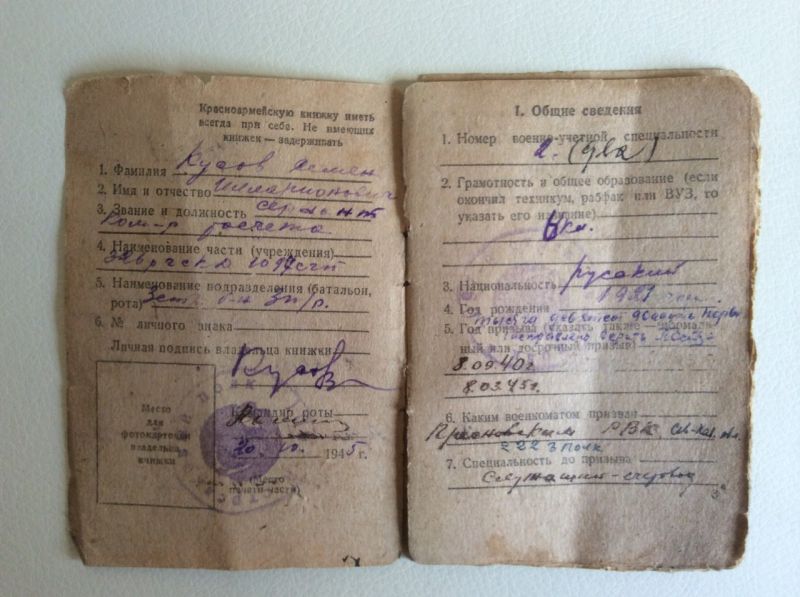 Красноармейскую книжку иметь
всегда при себе. Не имеющих
книжек — задерживать
1. Фамилия Кусов Семен
2. Имя и отчество Илларионович
3. Звание и должность сержант
Ком-р расчета
4. Наименование части (учреждения)
5. Наименование подразделения (батальон,
рота)
6. № личного знака
Личная подпись владельца книжки
Кусов
Место
для
фотокарточки
владельца
книжки
Командир роты
20 10. 1945 г.
(Место
печати части)
I. Общие сведения
1. Номер военно-учетной специальности
2. (два)
2. Грамотность и общее образование (если
окончил техникум, рабфак или ВУЗ, то
указать его название)
кл.
3. Национальность русский
4. Год рождения 1921
тысяча девятьсот двадцать первый
5. Год призыва (указать также — нормаль-
исправлено верить
ный или досрочный призыв)
8.09.40г
8.03.45г.
6. Каким военкоматом призван
РВК
222 З Полк
7. Специальность до призыва
Служащий-счетовод